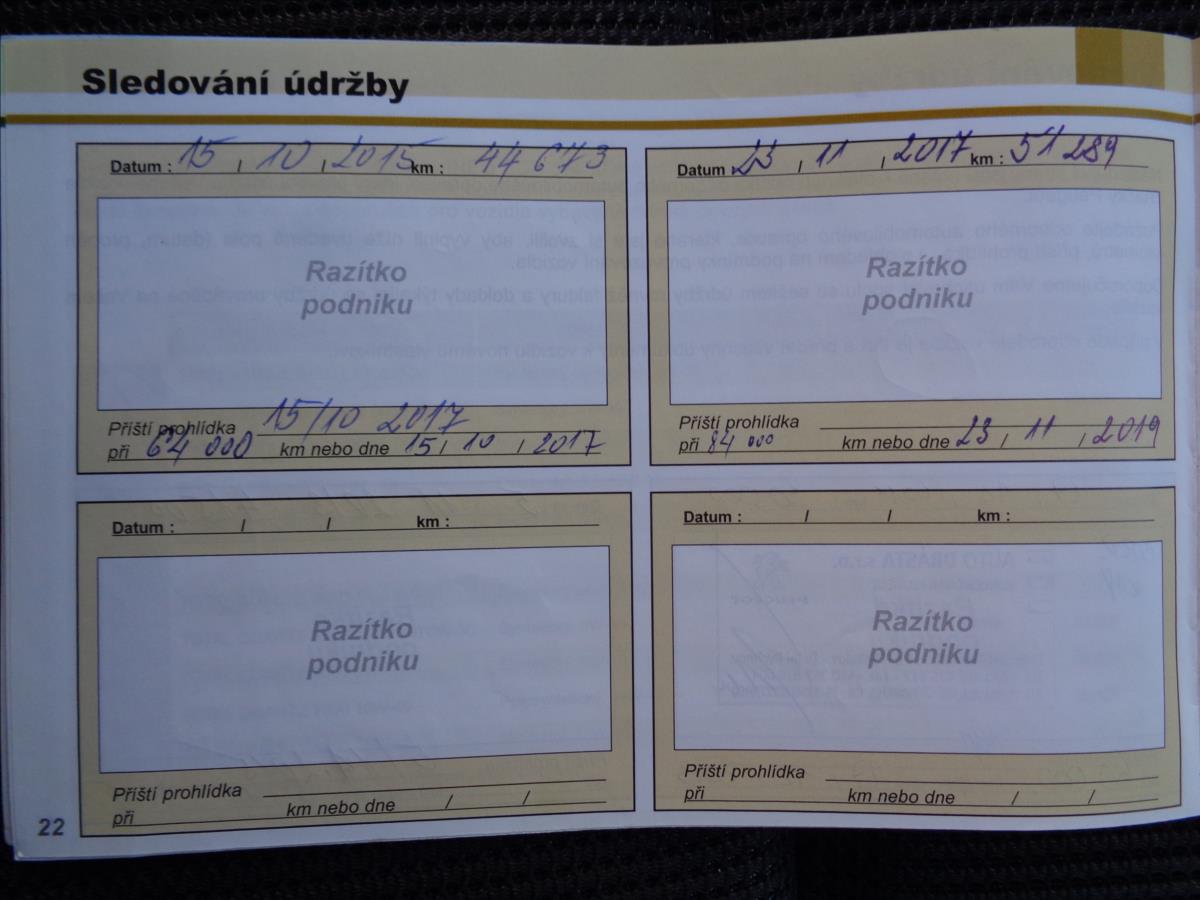 Sledování údržby
Datum : 15 / 10 / 2015 km : 44 673
Razítko
podniku
Příští prohlídka 15/10 2017
při 64 000 km nebo dne 15 / 10 / 2017
Datum : 23 / 11 / 2017 km : 51 289
Razítko
podniku
Příští prohlídka
při 84 000 km nebo dne 23 / 11 / 2019
Datum : / / km :
Razítko
podniku
Příští prohlídka
při km nebo dne / /
Datum : / / km :
Razítko
podniku
Příští prohlídka
při km nebo dne / /
22